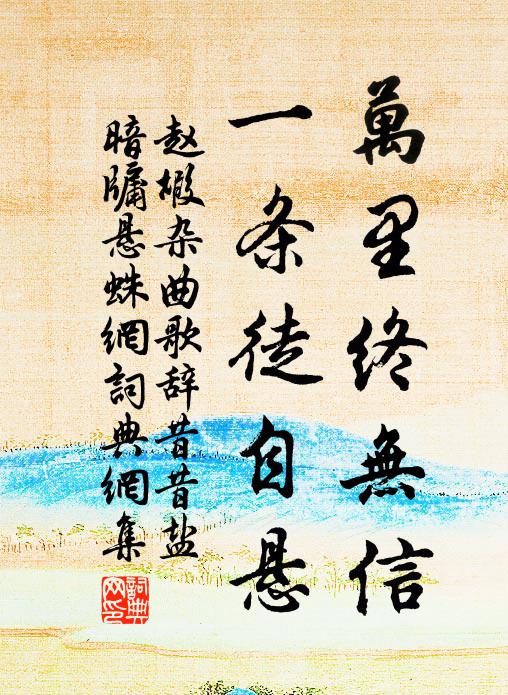 萬里終無信
一条徒自悬
赵嘏杂曲歌辞昔昔盐
暗牖悬蛛網詞典網集